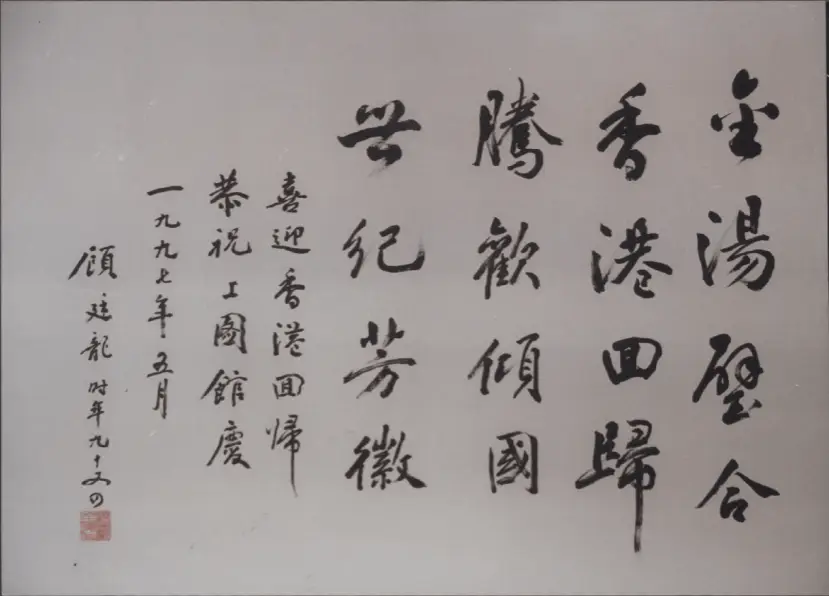 金湯璧合
香港回歸
騰歡傾國
世紀芳徽
喜迎香港回歸
恭祝上圖館慶
一九九七年五月
顧廷龍時年九十又四